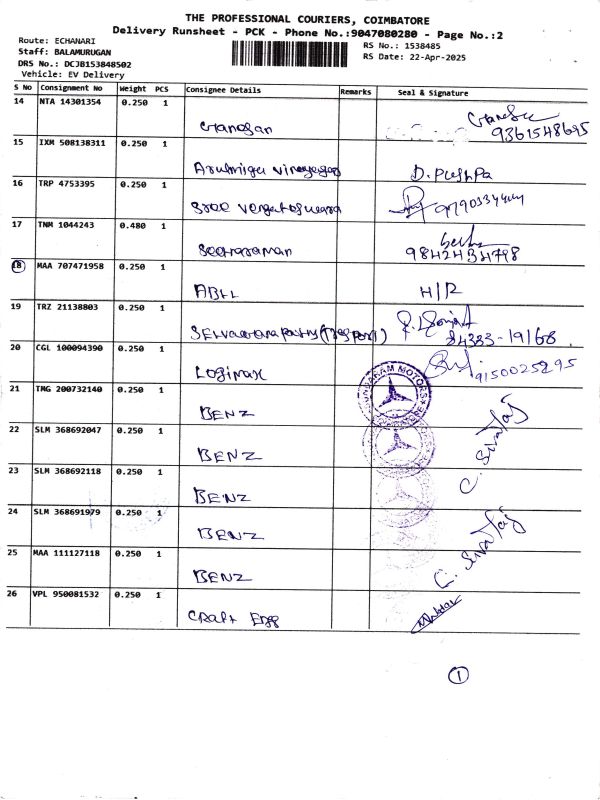 THE PROFESSIONAL COURIERS, COIMBATORE
Delivery Runsheet - PCK - Phone No.:9047080280 - Page No.:2
Route: ECHANARI
RS No.: 1538485
Staff: BALAMURUGAN
RS Date: 22-Apr-2025
DRS No.: DCJB153848502
Vehicle: EV Delivery
S No Consignment No Weight PCS Consignee Details Remarks Seal & Signature
14 NTA 14301354 0.250 1
Ganesan
9361548695
15 IXM 508138311 0.250 1
Arulmigu Vinayagar D. Pushpa
16 TRP 4753395 0.250 1
Sree
17 TNM 1044243 0.480 1
Seetharaman 9842434798
18 MAA 707471958 0.250 1
ABLL H/R
19 TRZ 21138803 0.250 1
84383-19168
20 CGL 100094390 0.250 1
Logimax 9150025295
21 TMG 200732140 0.250 1
BENZ
SUNDARAM MOTORS
22 SLM 368692047 0.250 1
BENZ
23 SLM 368692118 0.250 1
BENZ C. Sivaraj
24 SLM 368691979 0.250 1
BENZ
25 MAA 111127118 0.250 1
BENZ C. Sivaraj
26 VPL 950081532 0.250 1
Craft Egg
1